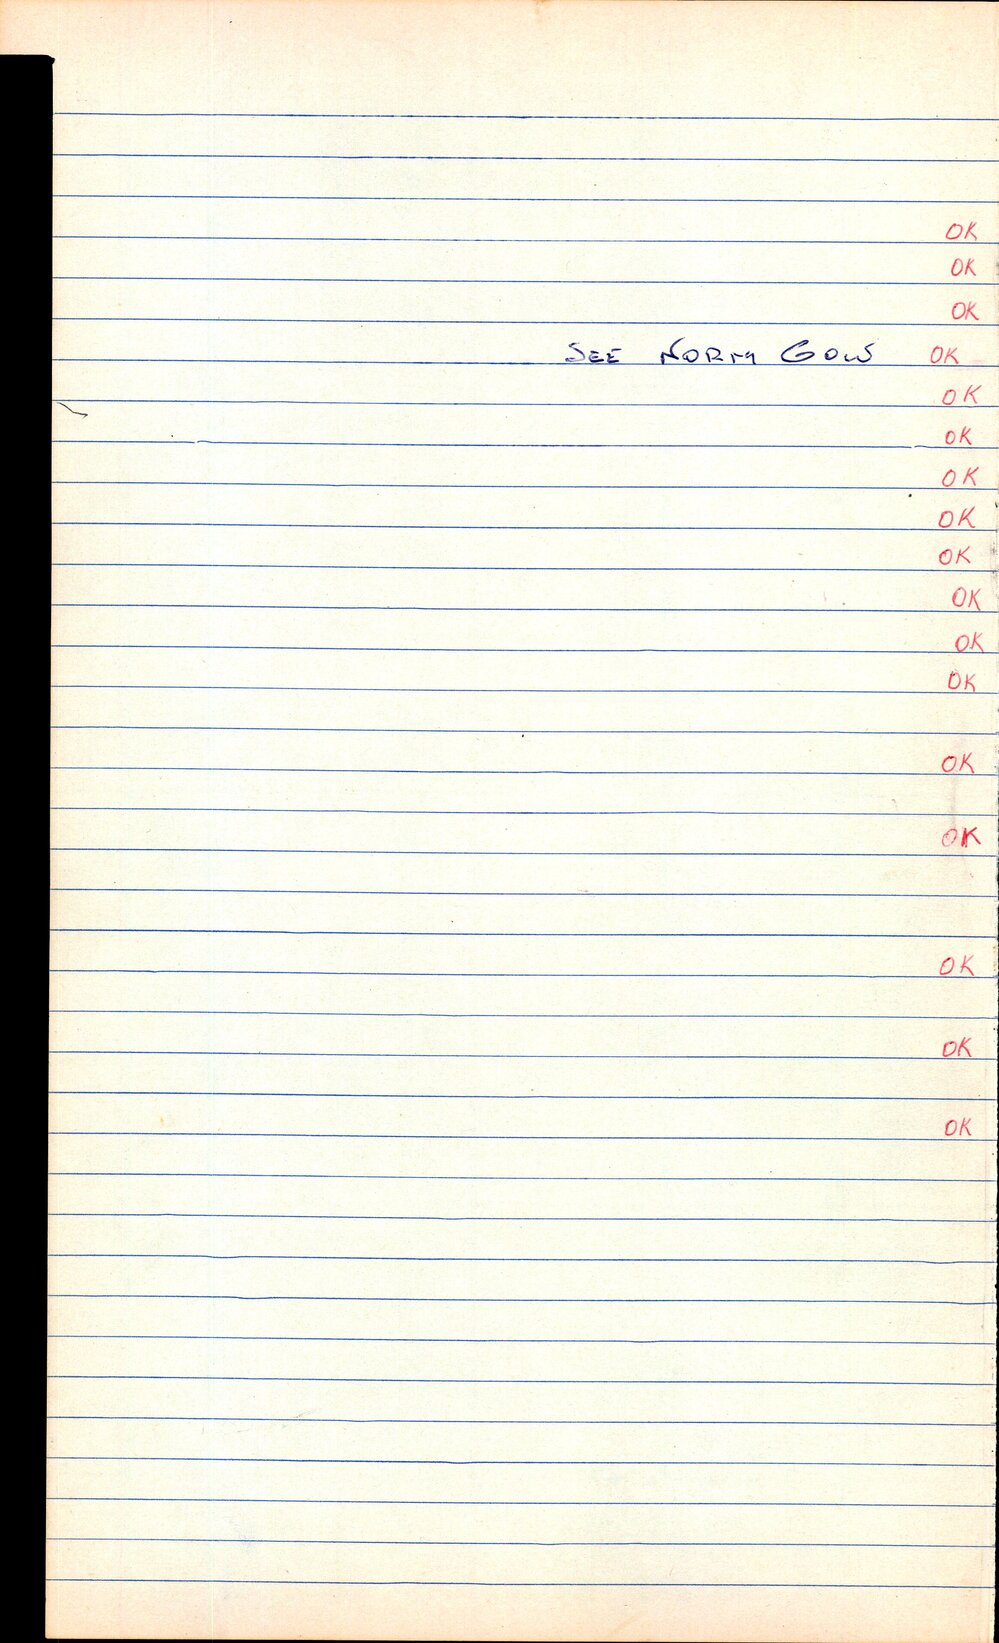 OK
OK
OK
SEE NORM GOW OK
OK
OK
OK
OK
OK
OK
OK
OK
OK
OK
OK
OK
OK